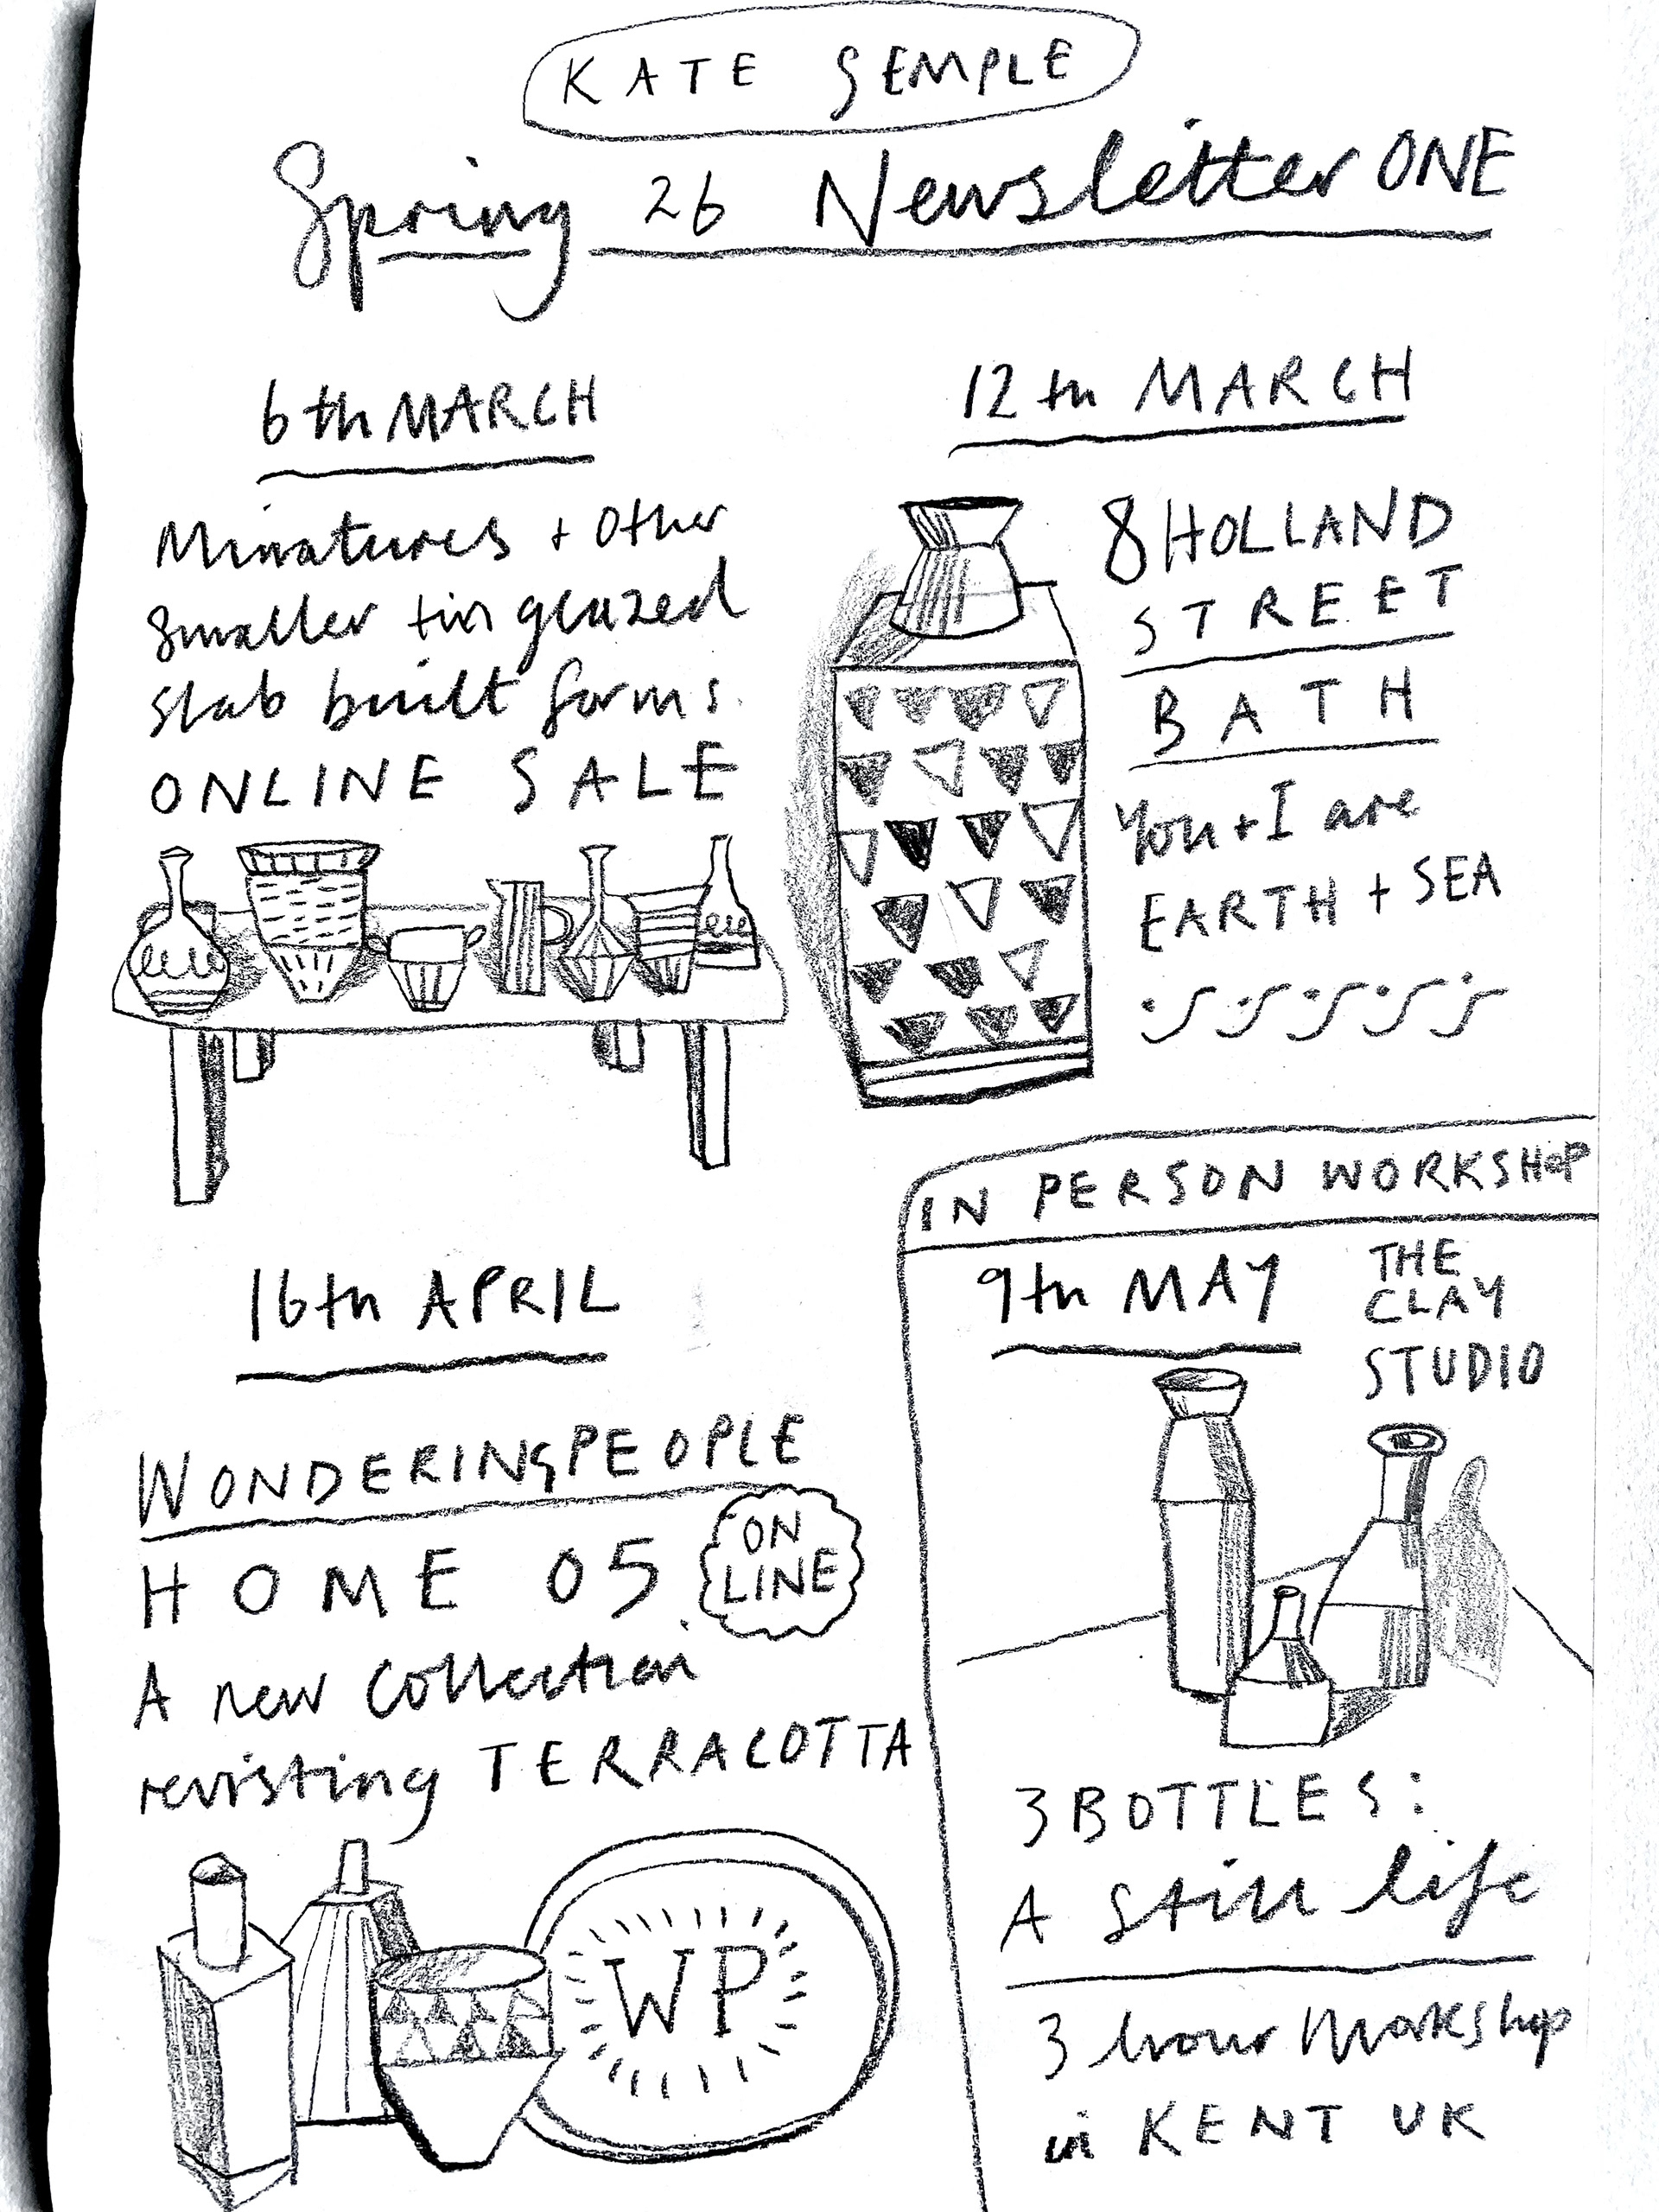 KATE SEMPLE
Spring 26 Newsletter ONE
6th MARCH
Minatures + Other
smaller tin glazed
slab built forms.
ONLINE SALE
12th MARCH
8 HOLLAND
STREET
BATH
You + I are
EARTH + SEA
16th APRIL
WONDERINGPEOPLE
HOME 05
ON
LINE
A new collection
revisting TERRACOTTA
WP
IN PERSON WORKSHOP
9th MAY
THE
CLAY
STUDIO
3 BOTTLES:
A Still life
3 hour workshop
in KENT UK